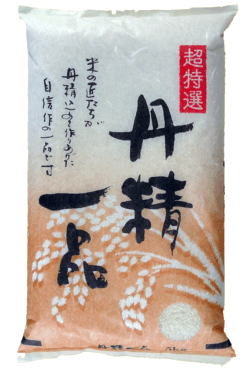 超特選
丹精
一品
米の匠たちが
丹精込めて作りあげた
自信作の一品です
丹精一品 5kg